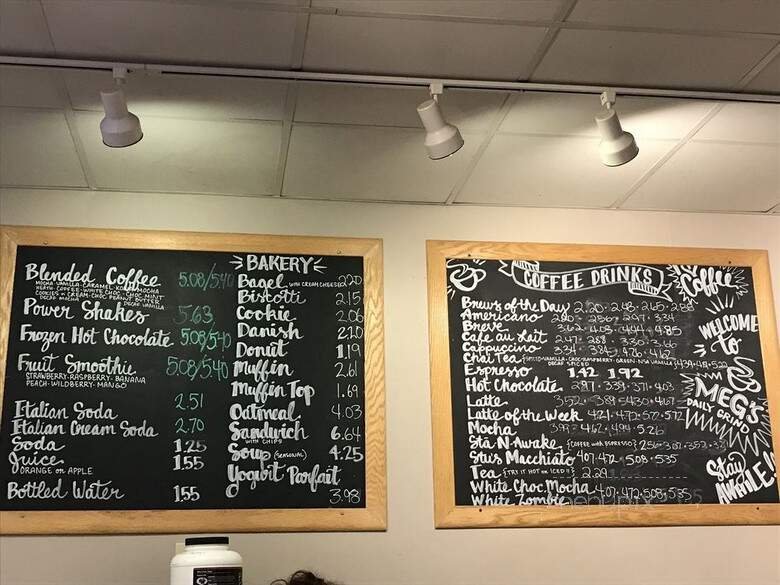 Blended Coffee 5.08/5.40
MOCHA-VANILLA-CARAMEL-KONA MOCHA
HEATH-COFFEE-WHITE CHOC-CHOC MINT
COOKIES N CREAM-CHOC PEANUT BUTTER
DECAF MOCHA
Power Shakes 5.63
Frozen Hot Chocolate 5.08/5.40
Fruit Smoothie 5.08/5.40
STRAWBERRY-RASPBERRY-BANANA
PEACH-WILDBERRY-MANGO
Italian Soda 2.51
Italian Cream Soda 2.70
Soda 1.25
Juice 1.55
ORANGE or APPLE
Bottled Water 1.55
BAKERY
Bagel WITH CREAM CHEESE 2.20
Biscotti 2.15
Cookie 2.06
Danish 2.20
Donut 1.19
Muffin 2.61
Muffin Top 1.69
Oatmeal 4.03
Sandwich 6.64
WITH CHIPS
Soup (SEASONAL) 4.25
Yogurt Parfait
3.98
COFFEE DRINKS
Brews of the Day 2.20-2.48-2.65-2.88
Americano
Breve
Cafe au Lait 2.47-2.88-3.30-3.66
Cappuccino
Chai Tea
DECAF SPICED
Espresso 1.42 1.92
Hot Chocolate 2.97-3.39-3.71-4.03
Latte
Latte of the Week 4.21-4.72-5.12-5.72
Mocha
Sta N Awake (COFFEE with ESPRESSO)
Stu's Macchiato 4.07-4.72-5.08-5.35
Tea (TRY IT HOT or ICED!) 2.29
White Choc. Mocha 4.07-4.72-5.08-5.35
White Zombie
Coffee
WELCOME
to
MEG'S
DAILY GRIND
Stay
AWHILE!